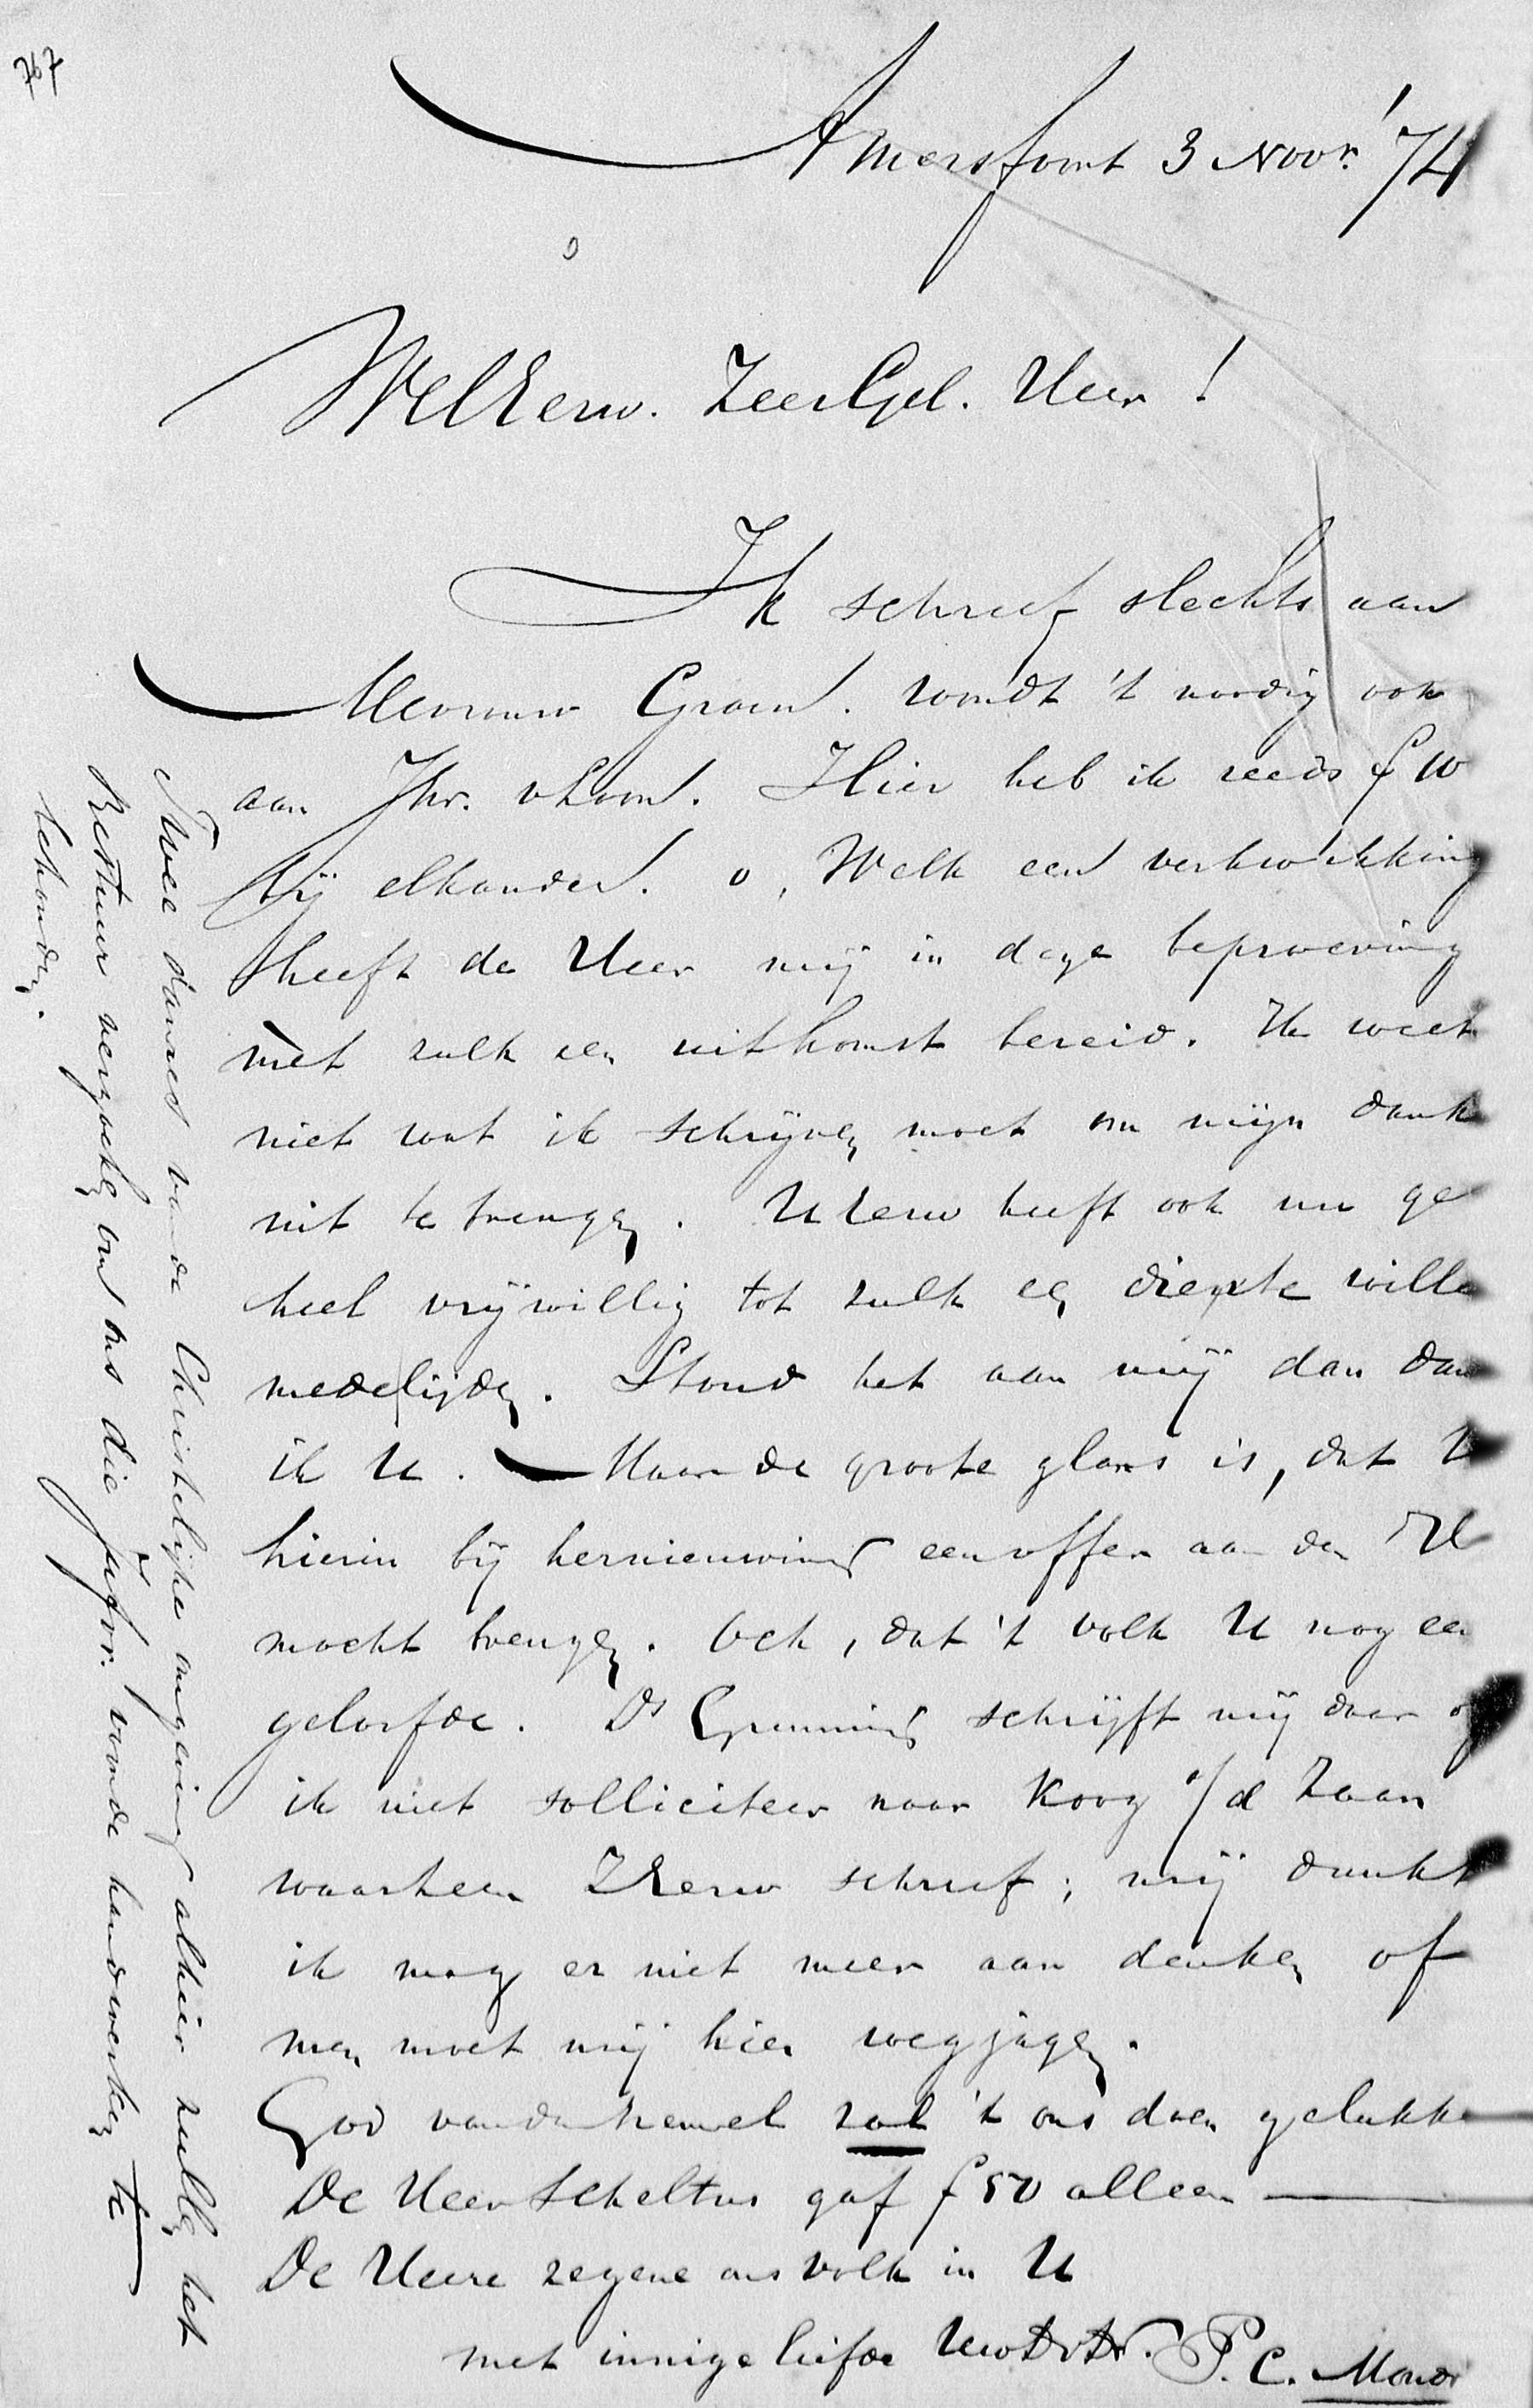 767
Amersfoort 3 Novr. '74
WelEerw. ZeerGel. Heer!
Ik schreef slechts aan
Mevrouw Groen. Wordt 't noodig ook
aan Jhr. v Loon. Hier heb ik reeds f 10
bij elkander. o, Welk een verkwikking
heeft de Heer mij in deze beproeving
met zulk een uitkomst bereid. Ik weet
niet wat ik schrijven moet om mijn dank
uit te brengen. UEerw heeft ook nu ge
heel vrijwillig tot zulk een diepte wille
medelijden. Stond het aan mij dan dan
ik U. Maar de groote glans is, dat U
hierin bij hernieuwing een offer aan den H
mocht brengen. Och, dat 't volk U nog een
geloofde. Ds Gunning schrijft mij daar of
ik niet solliciteer naar Koog a/d Zaan
waarheen ZEerw schreef; mij dunkt
ik mag er niet meer aan denken of
men moet mij hier wegjagen.
God van den hemel zal 't ons doen gelukken
De Heer Scheltus gaf f 50 alleen
De Heere zegene ons volk in U
met innige liefde UwDvDr. P. C. Mond
Twee dames van de Christelijke omgeving alhier zullen het
Bestuur verzoeken om ons die Jufvr. voor de handwerken te
behouden.